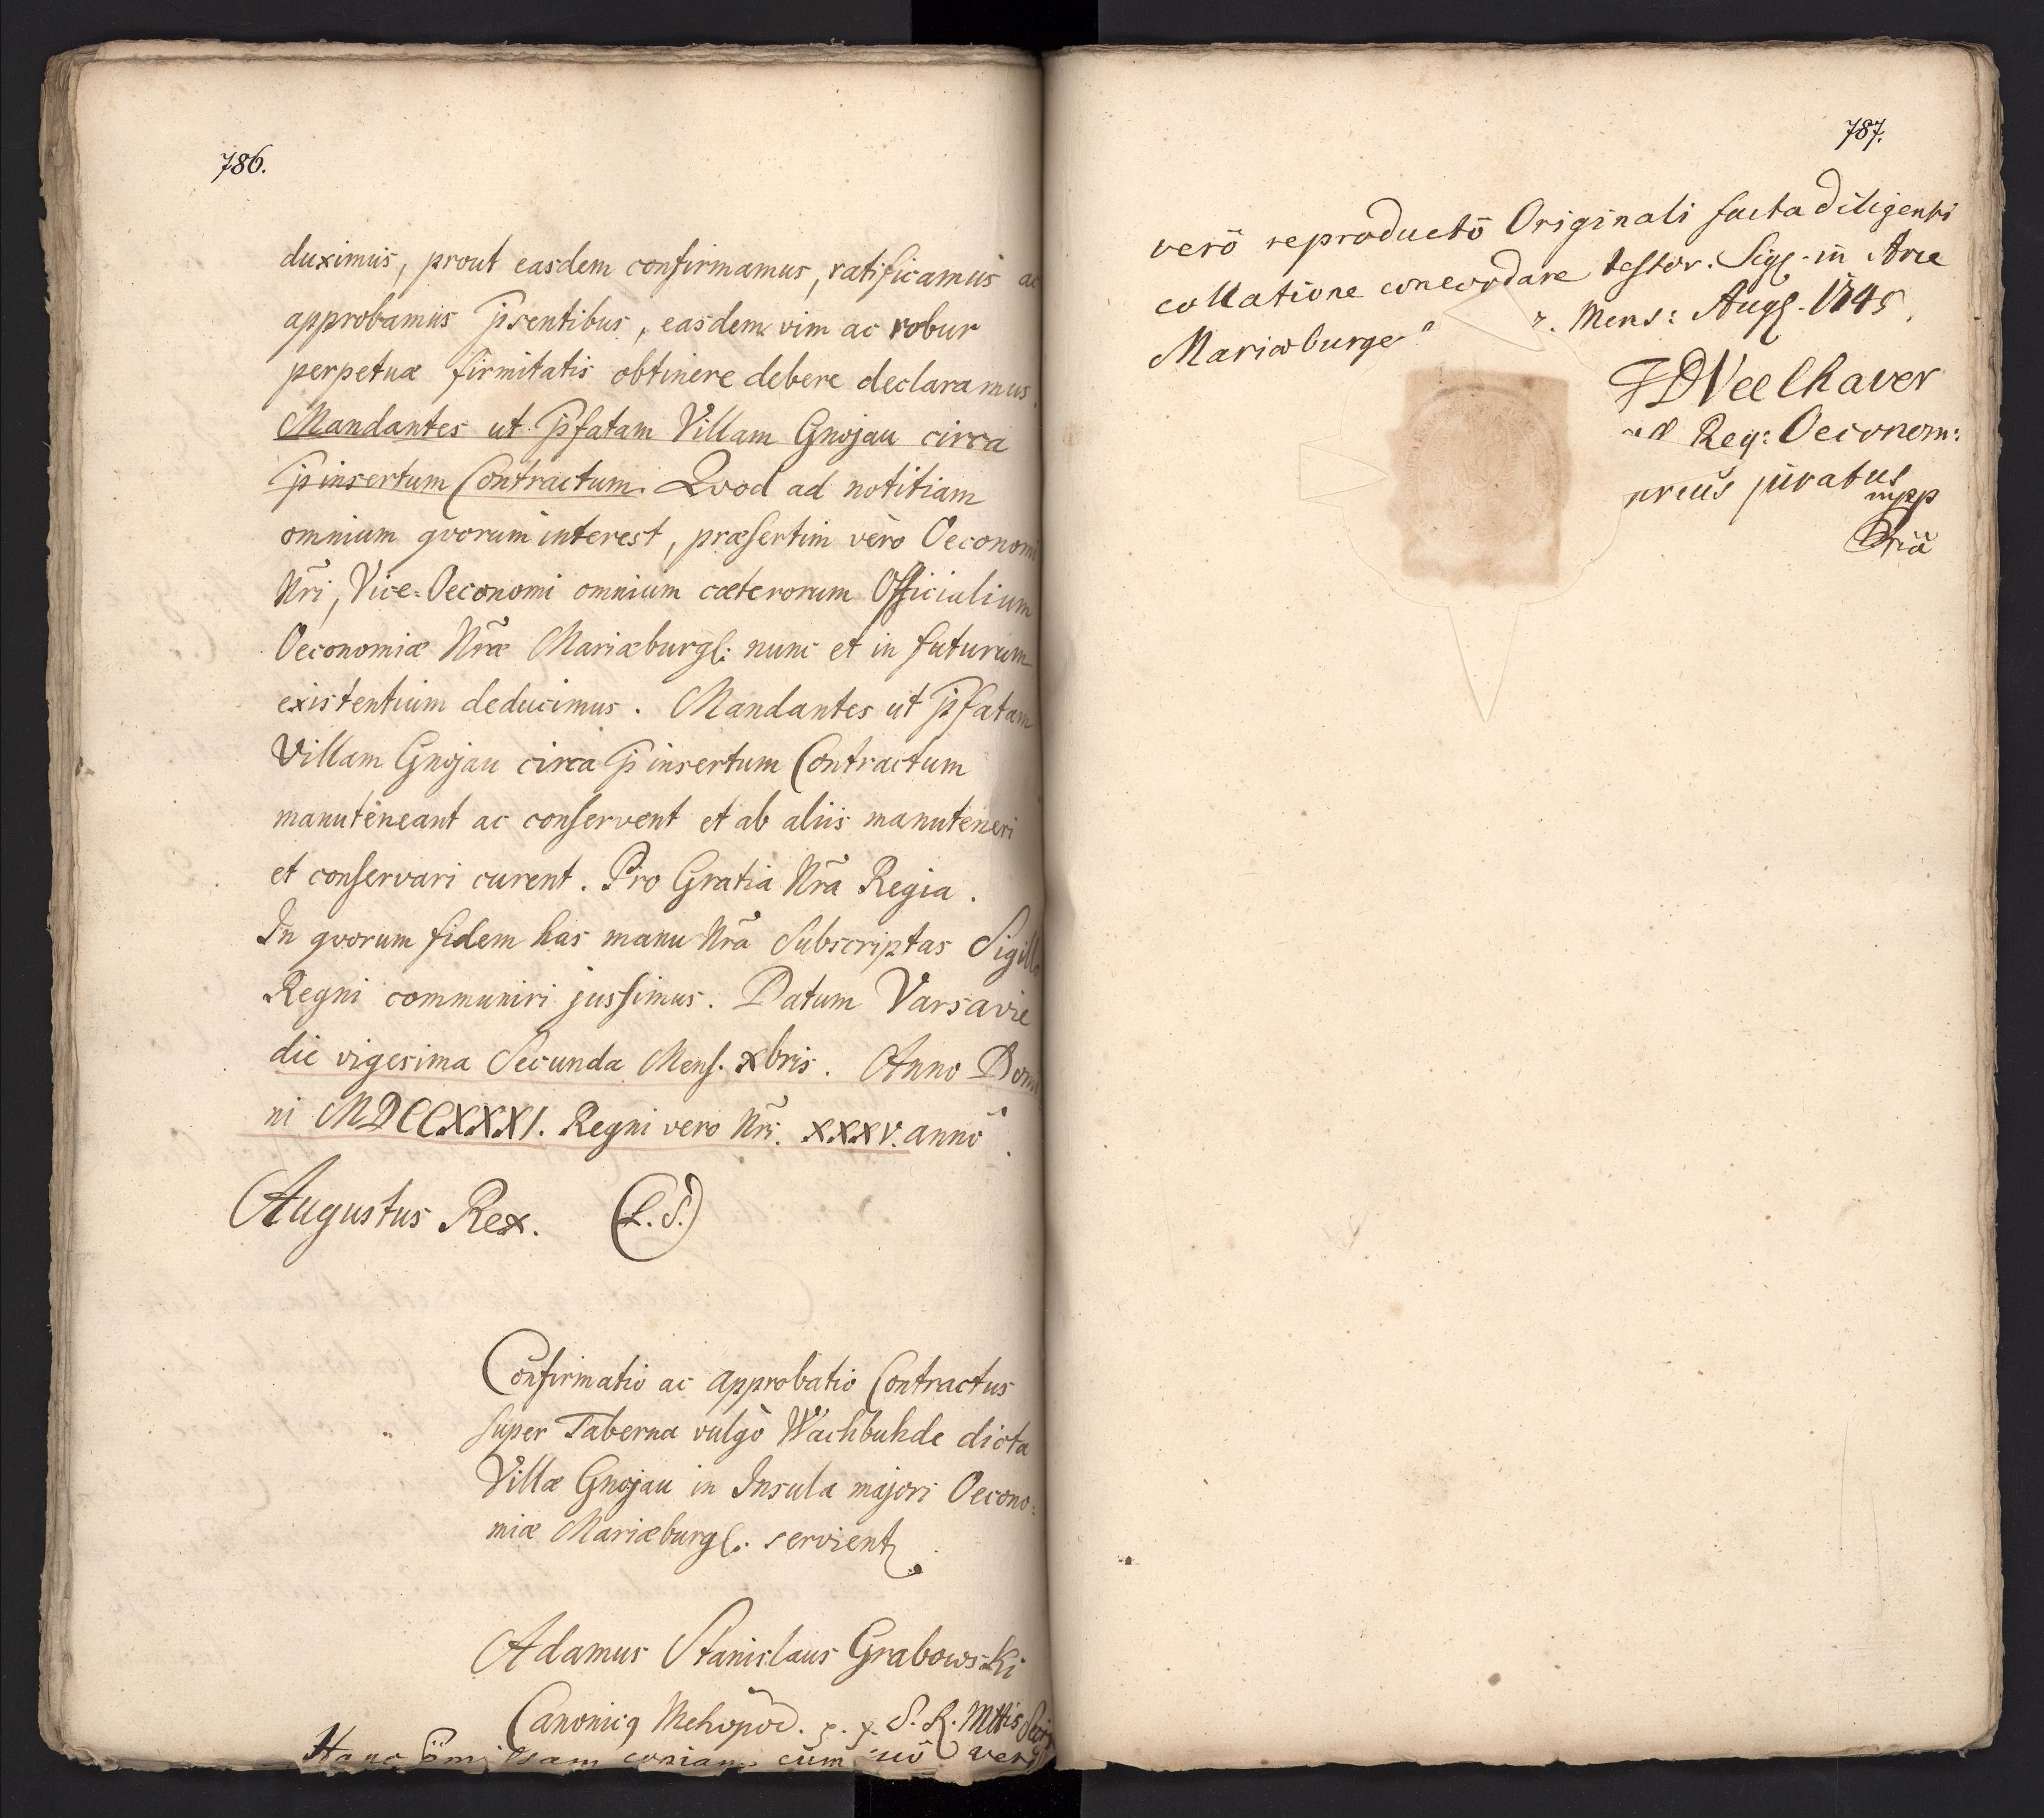 786.
duximus, prout easdem confirmamus, ratificamus ac
approbamus p̄sentibus, easdem vim ac robur
perpetuæ firmitatis obtinere debere declaramus.
Mandantes ut p̄fatam Villam Gnojau circa
p̄insertum Contractum. Qvod ad notitiam
omnium qvorum interest, præsertim vero Oeconomi
Nr̃i, Vice=Oeconomi omnium cæterorum Officialium
Oeconomiæ Nr̃æ Mariæburgḷ: nunc et in futurum
existentium deducimus. Mandantes ut p̄fatam
Villam Gnojau circa p̄insertum Contractum
manuteneant ac conservent et ab aliis manuteneri
et conservari curent. Pro Gratia Nr̃a Regia.
In qvorum fidem has manu Nr̃a Subscriptas Sigillo
Regni communiri jussimus. Datum Varsavie
die vigesima Secunda Mens. Xbris. Anno Domi
ni MDCCXXXI. Regni vero Nr̃i. XXXV. annô.
Augustus Rex. (L.S.)
Confirmatio ac approbatio Contractus
super Taberna vulgò Wachbuhde dicta
Villæ Gnojau in Insula majori Oecono=
miæ Mariæburgl. servient
Adamus Stanislaus Grabowski
Canonicq S. R. Mttis
copiam cum suô
787.
verô reproductô Originali facta diligenti
collatione concordare testor. Sigl. in Arce
Mariæburge Mens: Augl. 1745.
Veelhaver
Reg: Oeconom:
juratus
mpp